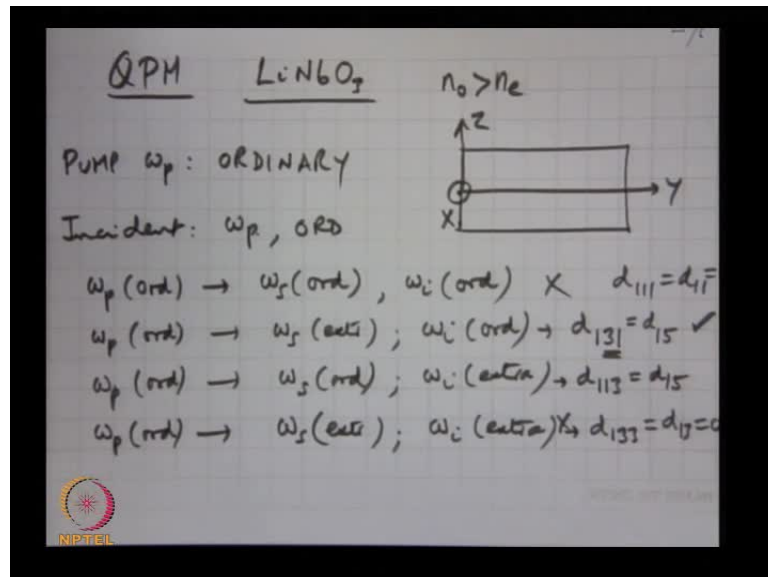 QPM LiNbO₃ n₀ > nₑ
Z
PUMP ωₚ : ORDINARY
Y
Incident : ωₚ , ORD
X
ωₚ (ord) → ωₛ (ord) , ωᵢ (ord) X d₁₁₁ = d₁₁ =
ωₚ (ord) → ωₛ (ext) ; ωᵢ (ord) → d₁₃₁ = d₁₅ ✓
ωₚ (ord) → ωₛ (ord) ; ωᵢ (extra) → d₁₁₃ = d₁₅
ωₚ (ord) → ωₛ (ext) ; ωᵢ (extra) X→ d₁₃₃ = d₁₃ = 0
NPTEL